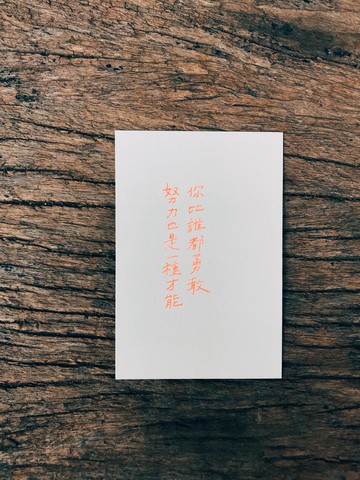 你比誰都勇敢
努力也是一種才能